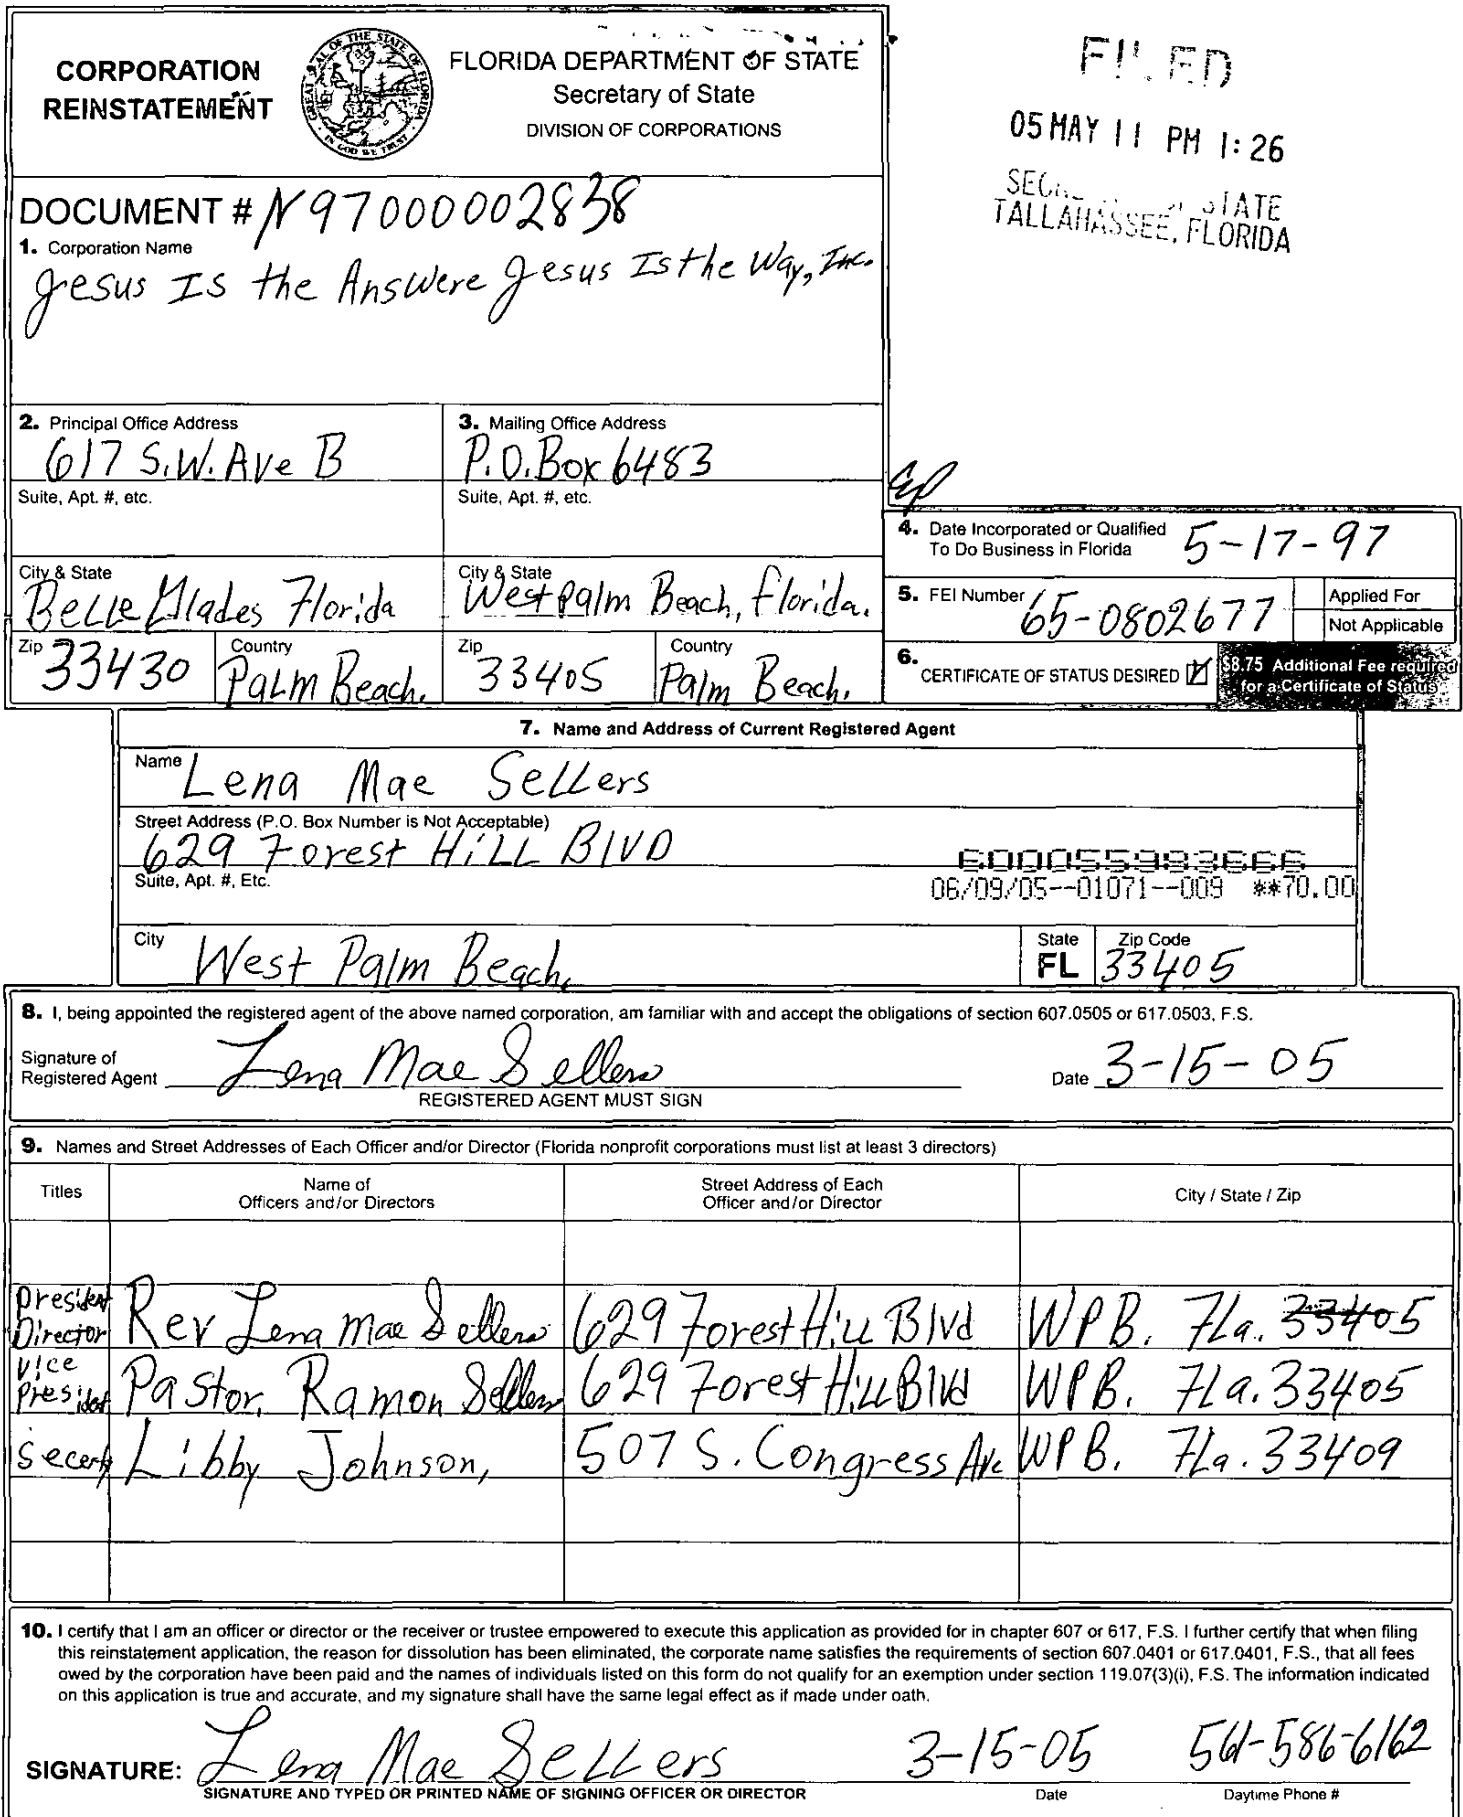 CORPORATION
REINSTATEMENT
GREAT SEAL OF THE STATE OF FLORIDA
IN GOD WE TRUST
FLORIDA DEPARTMENT OF STATE
Secretary of State
DIVISION OF CORPORATIONS
FILED
05 MAY 11 PM 1:26
STATE
TALLAHASSEE, FLORIDA
DOCUMENT # N97000002838
1. Corporation Name
Jesus Is the Answere Jesus Is the Way, Inc.
2. Principal Office Address
617 S.W. Ave B
3. Mailing Office Address
P.O. Box 6483
Suite, Apt. #, etc.
Suite, Apt. #, etc.
City & State
Belle Glades Florida
City & State
West Palm Beach, Florida.
Zip 33430
Country
Palm Beach.
Zip
33405
Country
Palm Beach.
4. Date Incorporated or Qualified
To Do Business in Florida 5-17-97
5. FEI Number 65-0802677
Applied For
Not Applicable
6. CERTIFICATE OF STATUS DESIRED
$8.75 Additional Fee required
for a Certificate of Status
7. Name and Address of Current Registered Agent
Name Lena Mae Sellers
Street Address (P.O. Box Number is Not Acceptable)
629 Forest Hill BLVD
Suite, Apt. #, Etc.
600055983666
06/09/05--01071--009 **70.00
City West Palm Beach,
State
FL
Zip Code
33405
8. I, being appointed the registered agent of the above named corporation, am familiar with and accept the obligations of section 607.0505 or 617.0503, F.S.
Signature of
Registered Agent Lena Mae Sellers
Date 3-15-05
REGISTERED AGENT MUST SIGN
9. Names and Street Addresses of Each Officer and/or Director (Florida nonprofit corporations must list at least 3 directors)
Titles
Name of
Officers and/or Directors
Street Address of Each
Officer and/or Director
City / State / Zip
President
Director Rev Lena Mae Sellers 629 Forest Hill Blvd WPB. Fla. 33405
Vice
President Pastor. Ramon Sellers 629 Forest Hill Blvd WPB. Fla. 33405
Secerty Libby Johnson, 507 S. Congress Ave WPB. Fla. 33409
10. I certify that I am an officer or director or the receiver or trustee empowered to execute this application as provided for in chapter 607 or 617, F.S. I further certify that when filing
this reinstatement application, the reason for dissolution has been eliminated, the corporate name satisfies the requirements of section 607.0401 or 617.0401, F.S., that all fees
owed by the corporation have been paid and the names of individuals listed on this form do not qualify for an exemption under section 119.07(3)(i), F.S. The information indicated
on this application is true and accurate, and my signature shall have the same legal effect as if made under oath.
SIGNATURE: Lena Mae Sellers 3-15-05 561-586-6162
SIGNATURE AND TYPED OR PRINTED NAME OF SIGNING OFFICER OR DIRECTOR
Date
Daytime Phone #